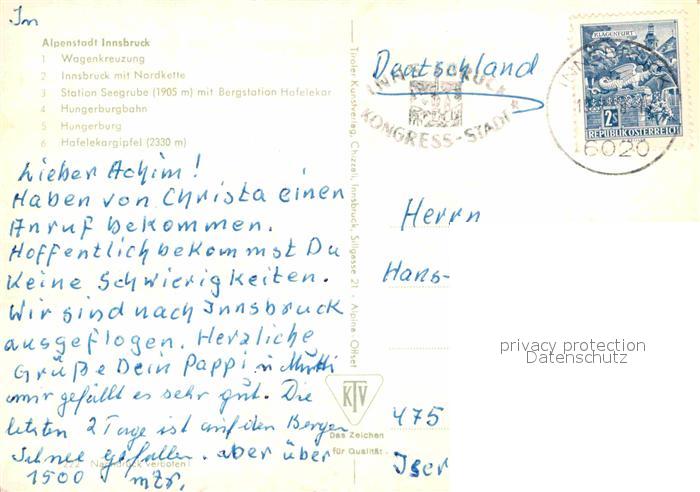 In
Alpenstadt Innsbruck
1 Wagenkreuzung
2 Innsbruck mit Nordkette
3 Station Seegrube (1905 m) mit Bergstation Hafelekar
4 Hungerburgbahn
5 Hungerburg
6 Hafelekargipfel (2330 m)
Lieber Achim!
Haben von Christa einen
Anruf bekommen.
Hoffentlich bekommst Du
keine Schwierigkeiten.
Wir sind nach Innsbruck
ausgeflogen. Herzliche
Grüße Dein Pappi u Mutti
mir gefällt es sehr gut. Die
letzten 2 Tage ist auf den Bergen
Schnee gefallen. aber über
1500 mtr.
222 Nachdruck verboten!
Tiroler Kunstverlag, Chizzali, Innsbruck, Sillgasse 21 - Alpina-Offset
KTV
Das Zeichen
für Qualität
Deutschland
INNSBRUCK
KONGRESS-STADT
KLAGENFURT
2S
REPUBLIK ÖSTERREICH
6020
Herrn
Hans-
475
Iser
privacy protection
Datenschutz